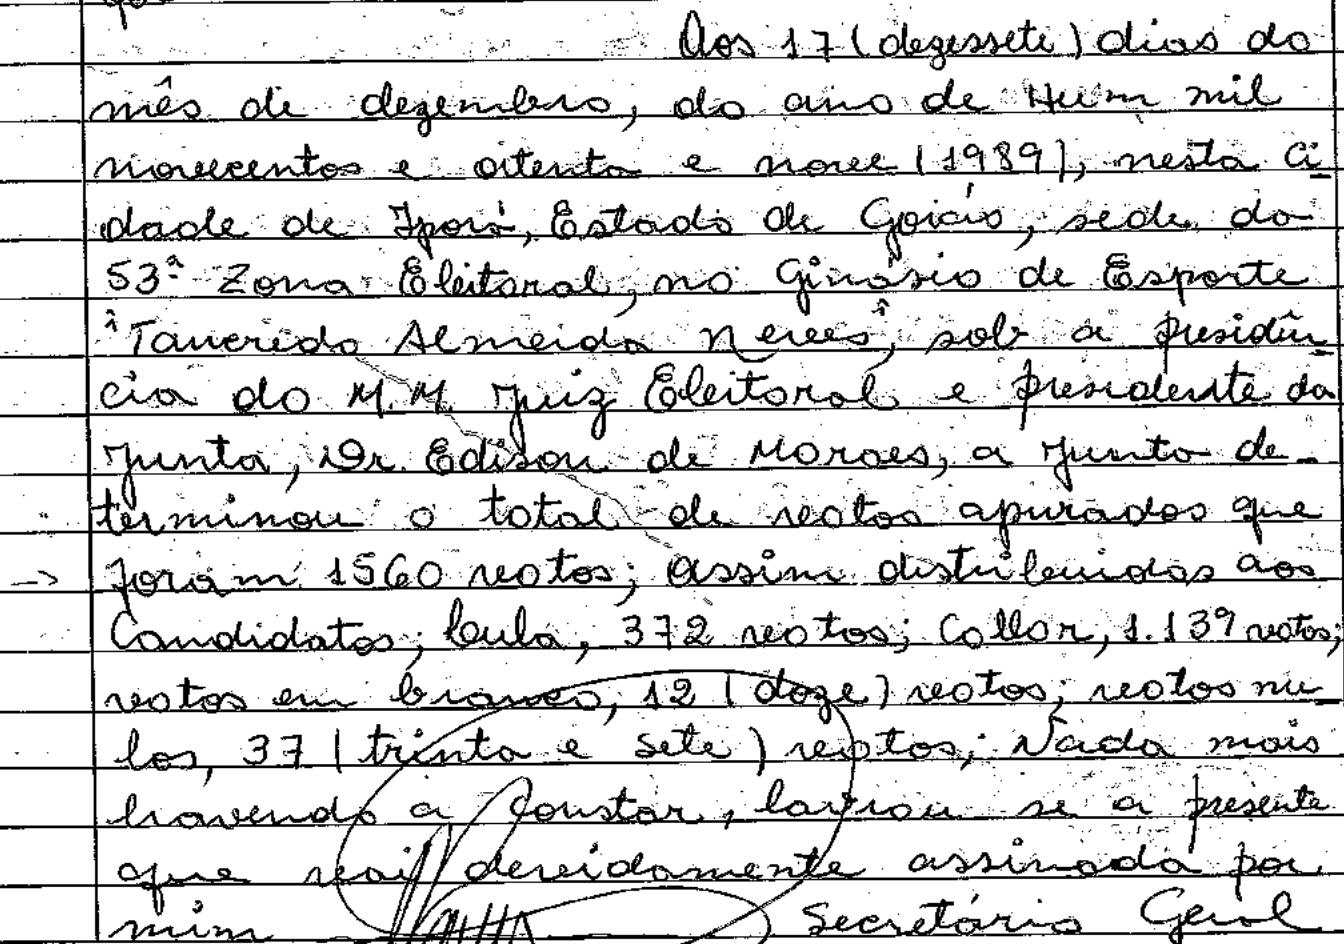 Aos 17 (dezessete) dias do
mês de dezembro, do ano de Hum mil
novecentos e oitenta e nove (1989), nesta ci
dade de Iporá, Estado de Goiás, sede da
53ª Zona Eleitoral, no Ginásio de Esporte
"Tancredo Almeida Neves", sob a presidên
cia do M.M. Juiz Eleitoral e presidente da
Junta, Dr. Edison de Moraes, a Junta de-
terminou o total de votos apurados que
-> foram 1560 votos; assim distribuidos aos
Candidatos; Lula, 372 votos; Collor, 1.139 votos;
votos em branco, 12 (doze) votos; votos nu
los, 37 (trinta e sete) votos; Nada mais
havendo a constar, lavrou se a presente
que vai devidamente assinada por
mim Secretário Geral